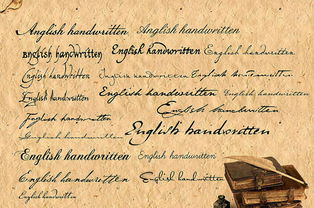 Anglish handwritten Anglish handwritten
English handwritten English handwritten English handwritten
English handwritten English handwritten English handwritten
English handwritten English handwritten English handwritten
English handwritten
English handwritten English handwritten
English handwritten
English handwritten English handwritten
English handwritten English handwritten
English handwritten